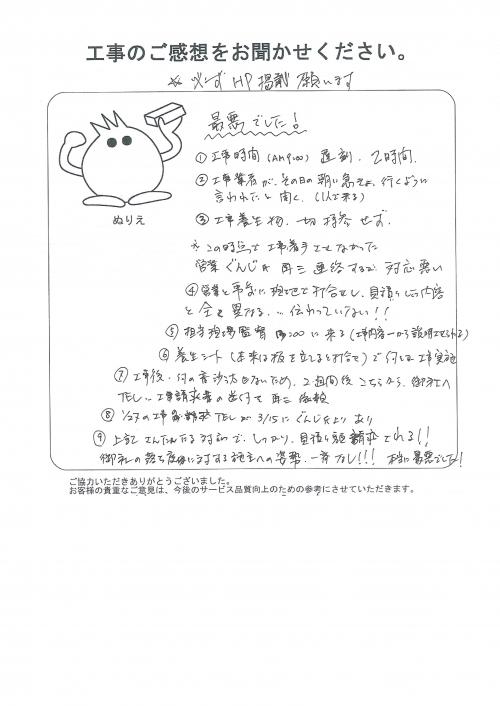 工事のご感想をお聞かせください。
※必ずHP掲載願います
最悪でした!
① 工事時間(AM9:00) 遅刻、2時間、
② 工事業者が、その日の朝に急きょ、行くように
言われたと聞く、(1人で来る)
③ 工事養生物、一切持参せず、
※この時点で工事着手させなかった
営業ぐんじ氏 再三連絡するが対応悪い
④ 営業と事前に現地で打合せし、見積りした内容
と全く異なる、… 伝わっていない!!
⑤ 担当現場監督 :00に来る(工事内容一から説明させられる)
⑥ 養生シート(本来は板を立てると打合せ)で何とか工事実施
⑦ 工事後、何の音沙汰もないため、2週間後こちらから、御社へ
TEL、… 工事請求書の送付を再三依頼
⑧ 1/27の工事 TELが3/15にぐんじ氏よりあり
⑨ 上記さんたんたる対応で、しっかり、見積り額請求される!!
御社の に対する施主への姿勢、一番なし!!! 本当に最悪でした!
ぬりえ
ご協力いただきありがとうございました。
お客様の貴重なご意見は、今後のサービス品質向上のための参考にさせていただきます。